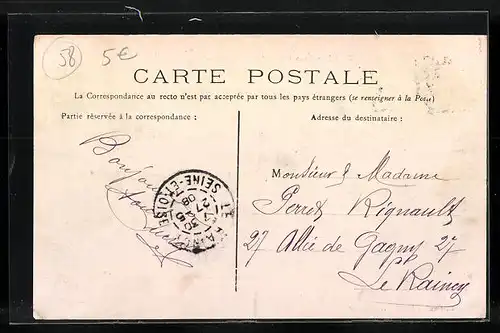 58
5€
CARTE POSTALE
La Correspondance au recto n'est pas acceptée par tous les pays étrangers (se renseigner à la Poste)
Partie réservée à la correspondance :
Adresse du destinataire :
Monsieur & Madame
Perret Rignault
27 Allée de Gagny 27
Le Raincy
SEINE-ET-OISE
08